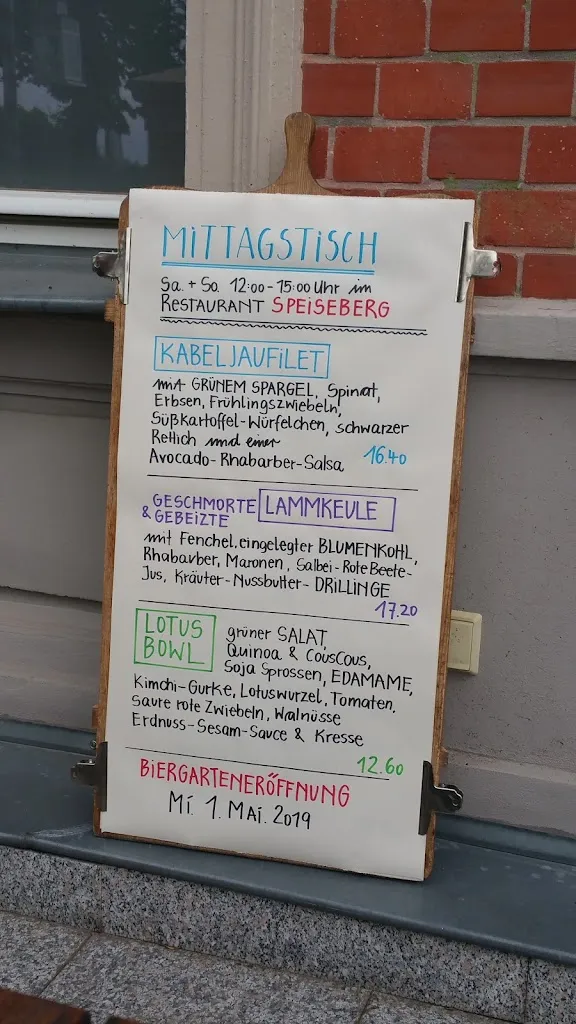 MITTAGSTISCH
Sa. + So. 12:00-15:00 Uhr im
RESTAURANT SPEISEBERG
KABELJAUFILET
mit GRÜNEM SPARGEL, Spinat,
Erbsen, Frühlingszwiebeln,
Süßkartoffel-Würfelchen, schwarzer
Rettich und einer
Avocado-Rhabarber-Salsa 16.40
GESCHMORTE LAMMKEULE
& GEBEIZTE
mit Fenchel, eingelegter BLUMENKOHL,
Rhabarber, Maronen, Salbei-Rote Beete-
Jus, Kräuter-Nussbutter-DRILLINGE
17.20
LOTUS
BOWL
grüner SALAT,
Quinoa & CousCous,
Soja Sprossen, EDAMAME,
Kimchi-Gurke, Lotuswurzel, Tomaten,
Saure rote Zwiebeln, Walnüsse
Erdnuss-Sesam-Sauce & Kresse
12.60
BIERGARTENERÖFFNUNG
Mi. 1. Mai. 2019